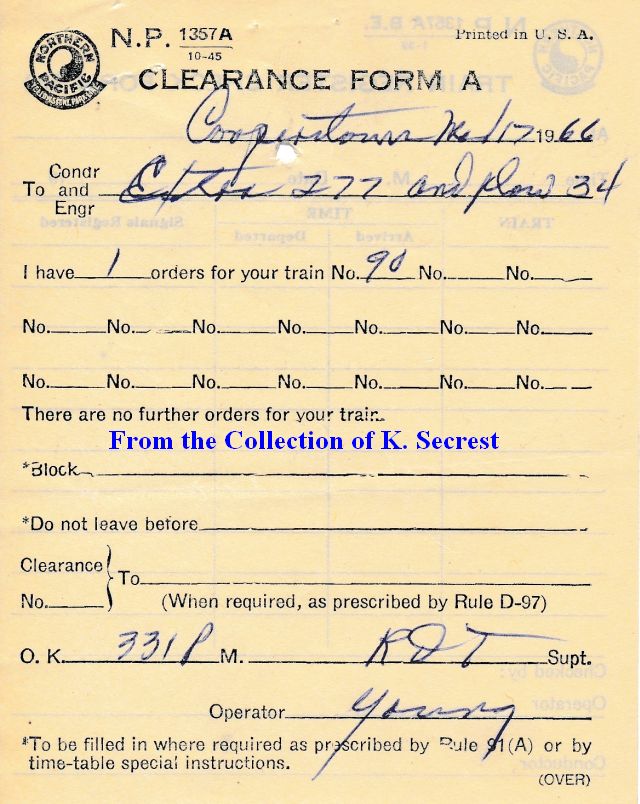 NORTHERN PACIFIC
YELLOWSTONE PARK LINE
N.P. 1357A
10-45
Printed in U. S. A.
CLEARANCE FORM A
Cooperstown Mch 17 1966
Condr
To and Extra 277 and plow 34
Engr
I have 1 orders for your train No. 90 No. No.
No. No. No. No. No. No. No.
No. No. No. No. No. No. No.
There are no further orders for your train.
From the Collection of K. Secrest
*Block
*Do not leave before
Clearance
To
No. (When required, as prescribed by Rule D-97)
O. K. 331 P M. RDT Supt.
Operator Young
*To be filled in where required as prescribed by Rule 91(A) or by
time-table special instructions.
(OVER)